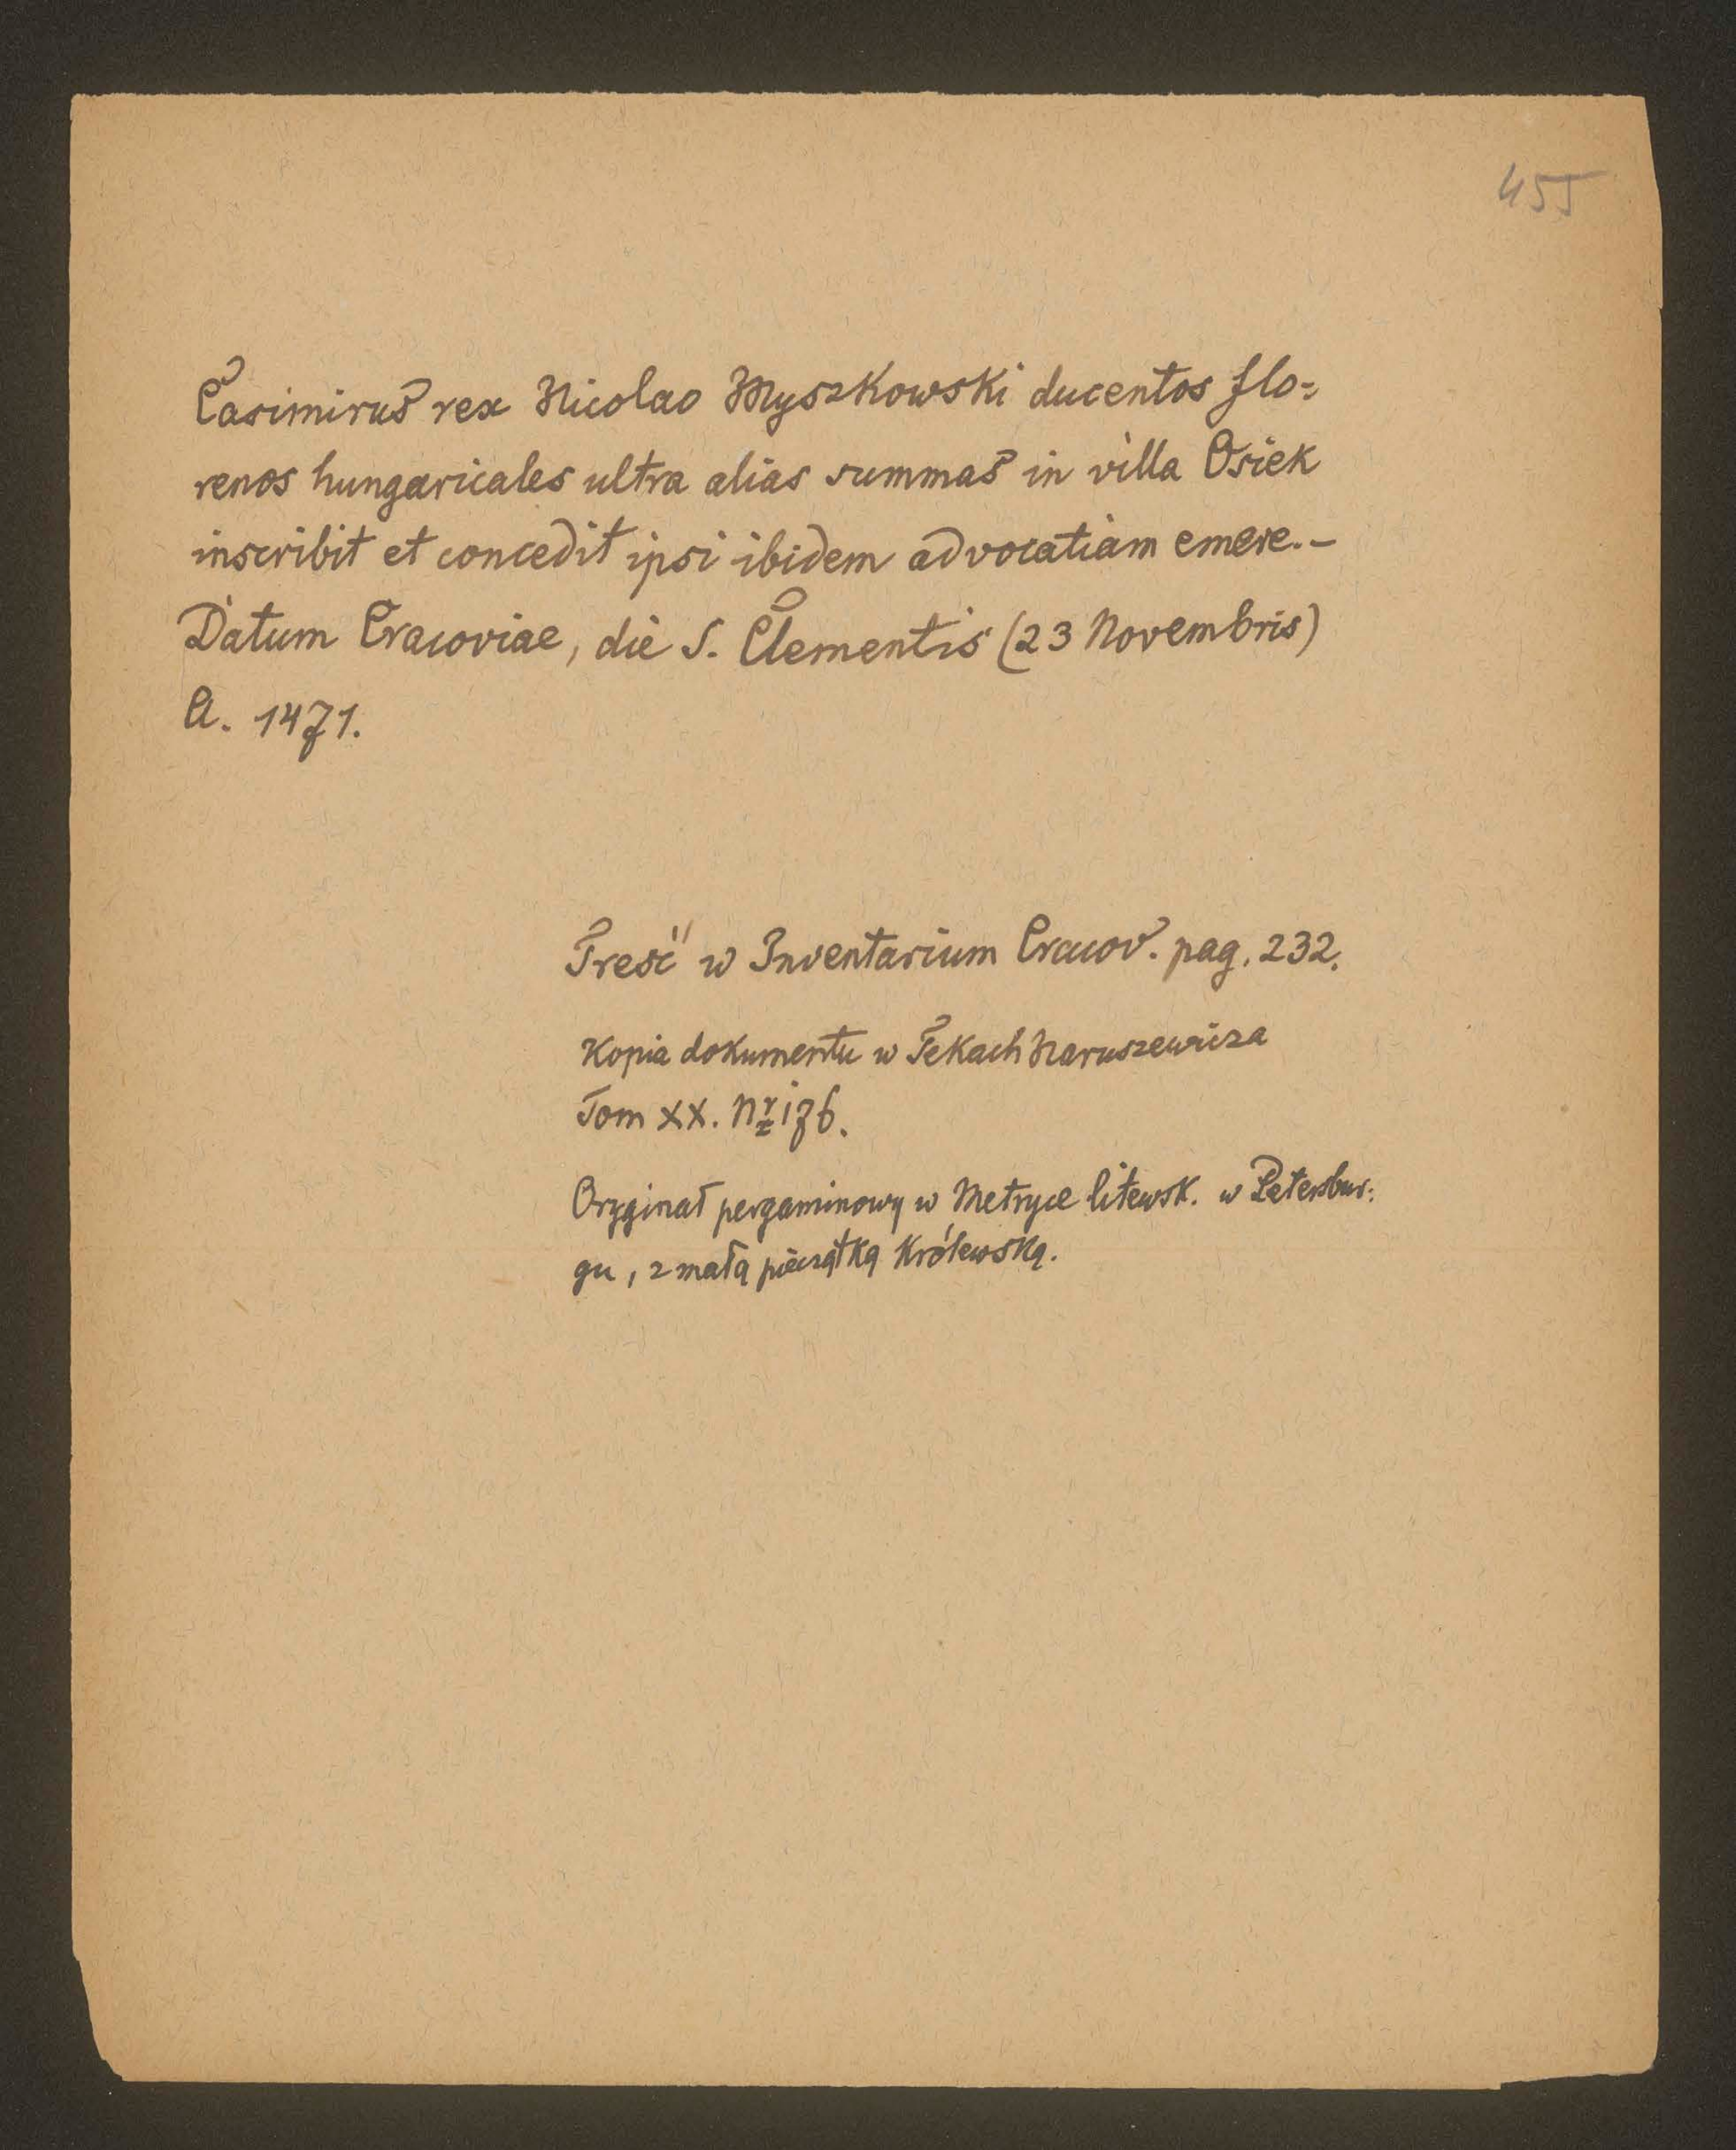 455
Casimirus rex Nicolao Myszkowski ducentos flo=
renos hungaricales ultra alias summas in villa Osiek
inscribit et concedit ipsi ibidem advocatiam emere.–
Datum Cracoviae, die S. Clementis (23 Novembris)
A. 1471.
Treść w Inventarium Cracov. pag. 232.
Kopia dokumentu w Tekach Naruszewicza
Tom XX. Nr 176.
Oryginał pergaminowy w Metryce litewsk. w Petersbur:
gu, z małą pieczątką Królewską.